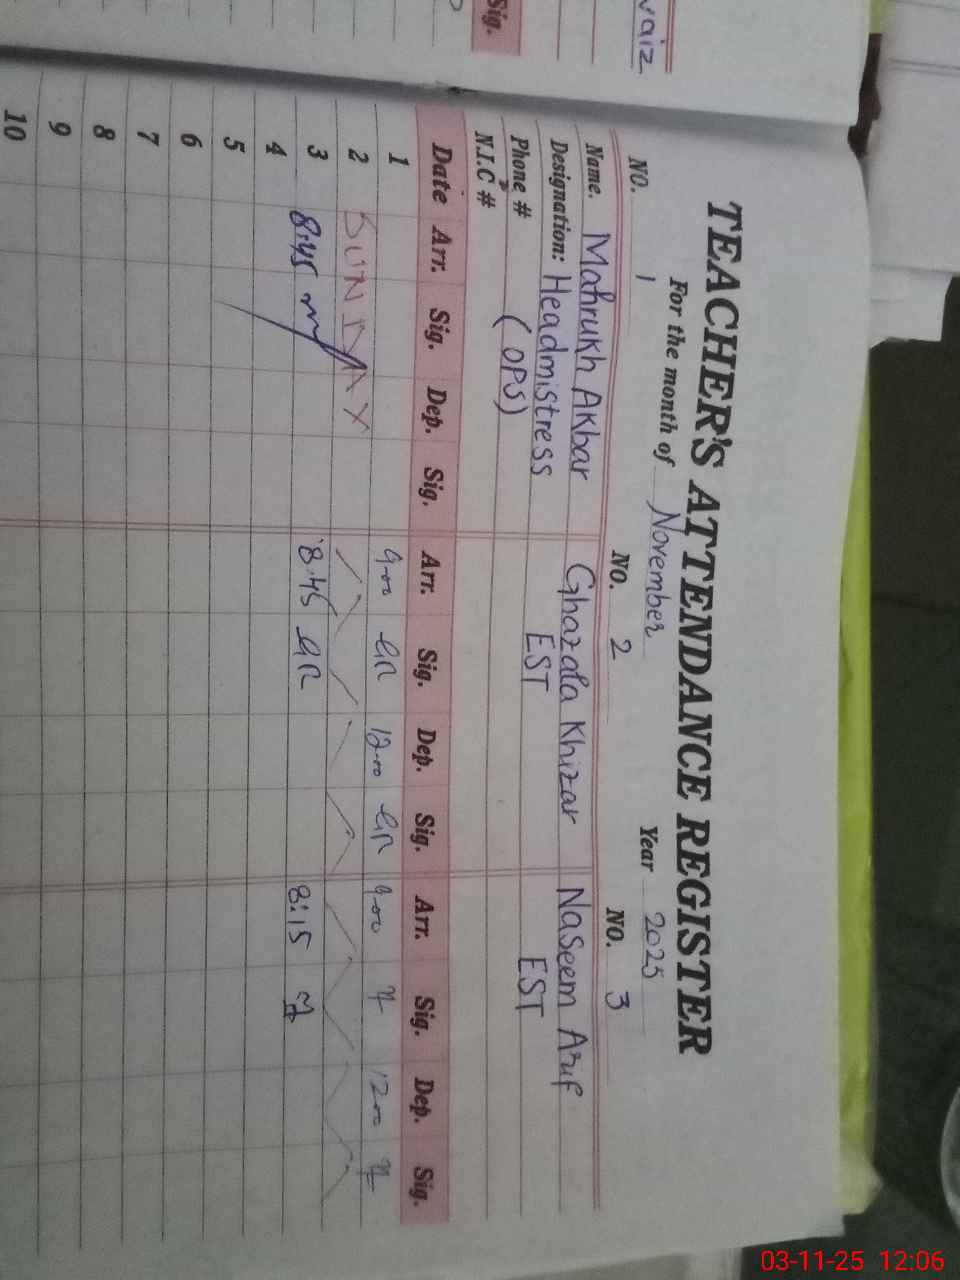 vaiz
Sig.
TEACHER'S ATTENDANCE REGISTER
For the month of November Year 2025
NO. 1 NO. 2 NO. 3
Name. Mahrukh Akbar Ghazala Khizar Naseem Arif
Designation: Headmistress EST EST
Phone # (OPS)
N.I.C #
Date Arr. Sig. Dep. Sig. Arr. Sig. Dep. Sig. Arr. Sig. Dep. Sig.
1 9-00 12-00 9-00 12-00
2 SUNDAY
3 8:45 8:45 8:15
4
5
6
7
8
9
10
03-11-25 12:06